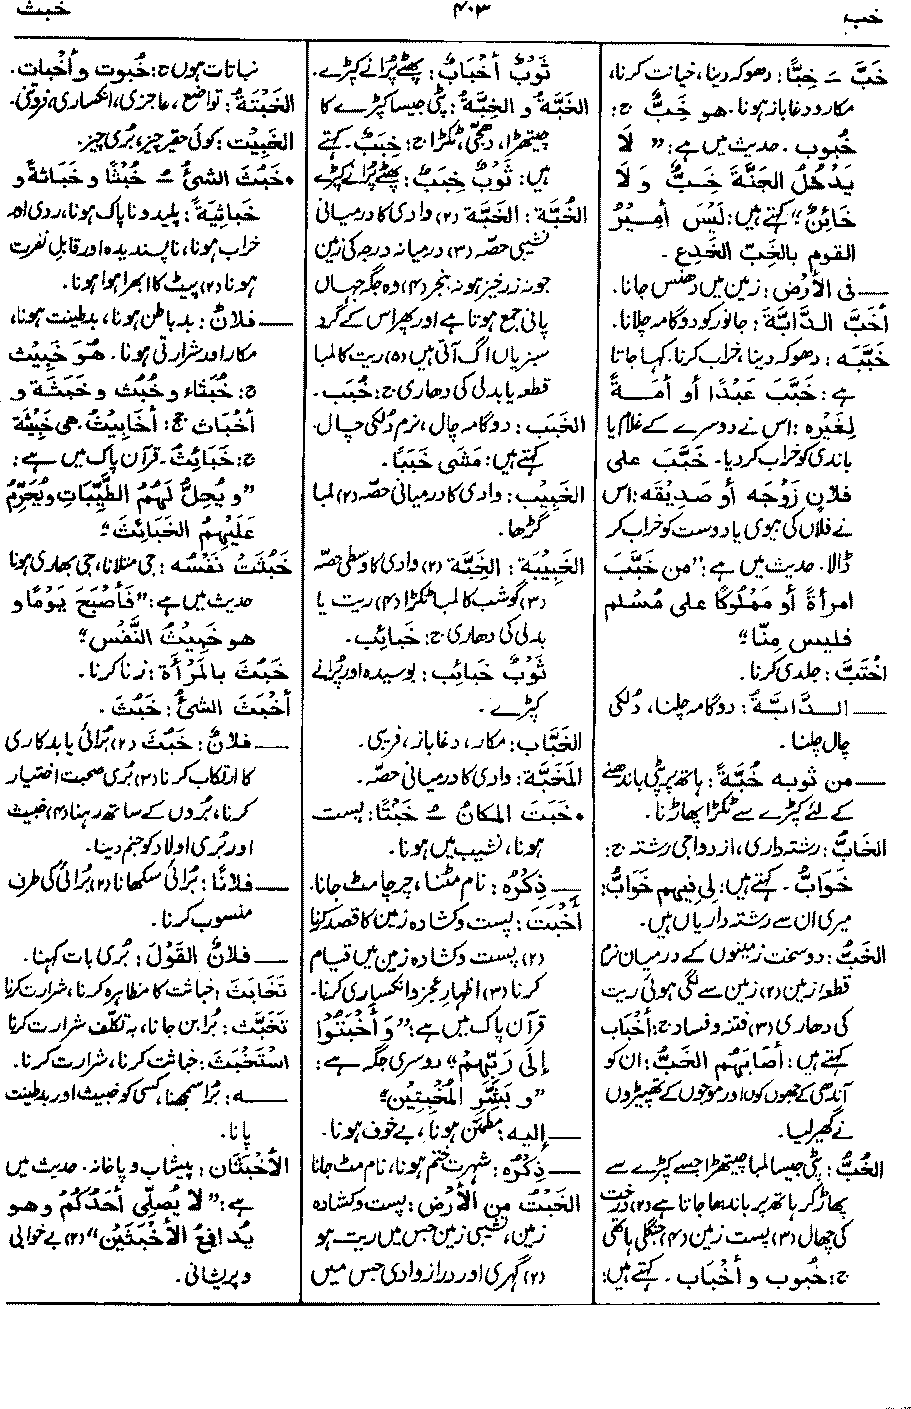 خب
۴۰۳
خبث
خَبَّ ــِ خِبًّا: دھوکہ دینا، خیانت کرنا،
مکار و دغاباز ہونا۔ ھو خَبٌّ ج:
خُبُوب۔ حدیث میں ہے: ”لَا
یَدْخُلُ الجَنَّةَ خَبٌّ وَلَا
خَائِنٌ“ کہتے ہیں: لَیْسَ أمِیْرُ
القومِ بالخَبِّ الخَدِعِ۔
ــــ فی الأرْضِ: زمین میں دھنس جانا۔
أخَبَّ الدَّابَّةَ: جانور کو دوگامہ چلانا۔
خَبَّبَه: دھوکہ دینا، خراب کرنا۔ کہا جاتا
ہے: خَبَّبَ عَبْدًا أو أمَةً
لِغَیْرِہ: اس نے دوسرے کے غلام یا
باندی کو خراب کردیا۔ خَبَّبَ علی
فلانٍ زَوْجَه أو صَدِیْقَه: اس
نے فلاں کی بیوی یا دوست کو خراب کر
ڈالا۔ حدیث میں ہے: ”من خَبَّبَ
امرأةً أو مَمْلُوکًا علی مُسْلم
فلیس مِنَّا“
اخْتَبَّ: جلدی کرنا۔
ــــ الدَّابَّةُ: دوگامہ چلنا، دُلکی
چال چلنا۔
ــــ من ثوبه خُبَّةً: ہاتھ پر پٹی باندھنے
کے لئے کپڑے سے ٹکڑا پھاڑنا۔
الخَابُّ: رشتہ داری، ازدواجی رشتہ ج:
خَوَابُّ۔ کہتے ہیں: لِی فیهم خَوَابُّ:
میری ان سے رشتہ داریاں ہیں۔
الخَبُّ: دو سخت زمینوں کے درمیان نرم
قطعہ زمین (۲) زمین سے لگی ہوئی ریت
کی دھاری (۳) فتنہ و فساد ج: أخْبَاب
کہتے ہیں: أصَابَهُم الخَبُّ: ان کو
آندھی کے جھونکوں اور موجوں کے تھپیڑوں
نے گھیر لیا۔
الخُبُّ: پٹی جیسا لمبا چیتھڑا جسے کپڑے سے
پھاڑ کر ہاتھ پر باندھا جاتا ہے (۲) درخت
کی چھال (۳) پست زمین (۴) جنگلی ہاتھی
ج: خُبُوب و أخْبَاب۔ کہتے ہیں:
ثَوْبٌ أخْبَابٌ: پھٹے پرانے کپڑے۔
الخَبَّةُ و الخِبَّةُ: پٹی جیسا کپڑے کا
چیتھڑا، دھجی، ٹکڑا ج: خِبَبٌ۔ کہتے
ہیں: ثَوْبٌ خِبَبٌ: پھٹے پرانے کپڑے
الخُبَّة: الخَبَّة (۲) وادی کا درمیانی
نشیبی حصّہ (۳) درمیانہ درجہ کی زمین
جو نہ زرخیز ہو نہ بنجر (۴) وہ جگہ جہاں
پانی جمع ہوتا ہے اور پھر اس کے گرد
سبزیاں اگ آتی ہیں (۵) ریت کا لمبا
قطعہ یا بدلی کی دھاری ج: خُبَب۔
الخَبَب: دوگامہ چال، نرم دُلکی چال۔
کہتے ہیں: مَشَی خَبَبًا۔
الخَبِیْب: وادی کا درمیانی حصّہ (۲) لمبا
گڑھا۔
الخَبِیْبَة: الخَبَّة (۲) وادی کا وسطی حصّہ
(۳) گوشت کا لمبا ٹکڑا (۴) ریت یا
بدلی کی دھاری ج: خَبَائِب۔
ثَوْبٌ خَبَائِب: بوسیدہ اور پرانے
کپڑے۔
الخَبَّاب: مکار، دغاباز، فریبی۔
المَخَبَّة: وادی کا درمیانی حصّہ۔
• خَبَتَ المکانُ ــُ خَبْتًا: پست
ہونا، نشیب میں ہونا۔
ــــ ذِکْرُہ: نام مٹنا، چرچا مٹ جانا۔
أخْبَتَ: پست و کشادہ زمین کا قصد کرنا
(۲) پست و کشادہ زمین میں قیام
کرنا (۳) اظہارِ عجز و انکساری کرنا۔
قرآن پاک میں ہے: ”وَ أَخْبَتُوْا
إلَی رَبِّهِمْ“ دوسری جگہ ہے:
”وَ بَشِّرِ المُخْبِتِیْنَ“
ــــ إلیه: مطمئن ہونا، بے خوف ہونا۔
ــــ ذِکْرُہ: شہرت ختم ہونا، نام مٹ جانا
الخَبْتُ من الأرْض: پست و کشادہ
زمین، نشیبی زمین جس میں ریت ہو
(۲) گہری اور دراز وادی جس میں
نباتات ہوں ج: خُبُوت و أخْبَات۔
الخَبْتَةُ: تواضع، عاجزی، انکساری، فروتنی۔
الخَبِیْت: کوئی حقیر چیز، بُری چیز۔
• خَبُثَ الشیْءُ ــُ خُبْثًا و خَبَاثَةً و
خَبَاثِیَةً: پلید و ناپاک ہونا، ردی اور
خراب ہونا، ناپسندیدہ اور قابلِ نفرت
ہونا (۲) پیٹ کا ابھرا ہوا ہونا۔
ــــ فلانٌ: بد باطن ہونا، بد طینت ہونا،
مکار اور شرارتی ہونا۔ ھُوَ خَبِیْث
ج: خُبَثَاء و خُبُث و خَبَثَة و
أخْبَاث جج: أخَابِیْثُ۔ ھی خَبِیْثَة
ج: خَبَائِثُ۔ قرآن پاک میں ہے:
”و یُحِلُّ لَهُمُ الطَّیِّبَاتِ وَیُحَرِّمُ
عَلَیْهِمُ الخَبَائِثَ“
خَبُثَتْ نَفْسُه: جی متلانا، جی بھاری ہونا
حدیث میں ہے: ”فَأَصْبَحَ یَوْمًا و
ھو خَبِیْثُ النَّفْسِ“
خَبُثَ بالمَرْأة: زنا کرنا۔
أخْبَثَ الشیْءُ: خَبُثَ۔
ــــ فلانٌ: خَبُثَ (۲) برائی یا بدکاری
کا ارتکاب کرنا (۳) بُری صحبت اختیار
کرنا، بُروں کے ساتھ رہنا (۴) خبیث
اور بُری اولاد کو جنم دینا۔
ــــ فلانًا: برائی سکھانا (۲) برائی کی طرف
منسوب کرنا۔
ــــ فلانٌ القَوْلَ: بُری بات کہنا۔
تَخَابَثَ: خباثت کا مظاہرہ کرنا، شرارت کرنا
تَخَبَّثَ: بُرا بن جانا، بہ تکلّف شرارت کرنا
اسْتَخْبَثَ: خباثت کرنا، شرارت کرنا۔
ــــ ہ: بُرا سمجھنا، کسی کو خبیث اور بد طینت
پانا۔
الأخْبَثَان: پیشاب و پاخانہ۔ حدیث میں
ہے: ”لا یُصَلِّی أحَدُکُمْ وھو
یُدَافِعُ الأخْبَثَیْن“ (۲) بے خوابی
و پریشانی۔